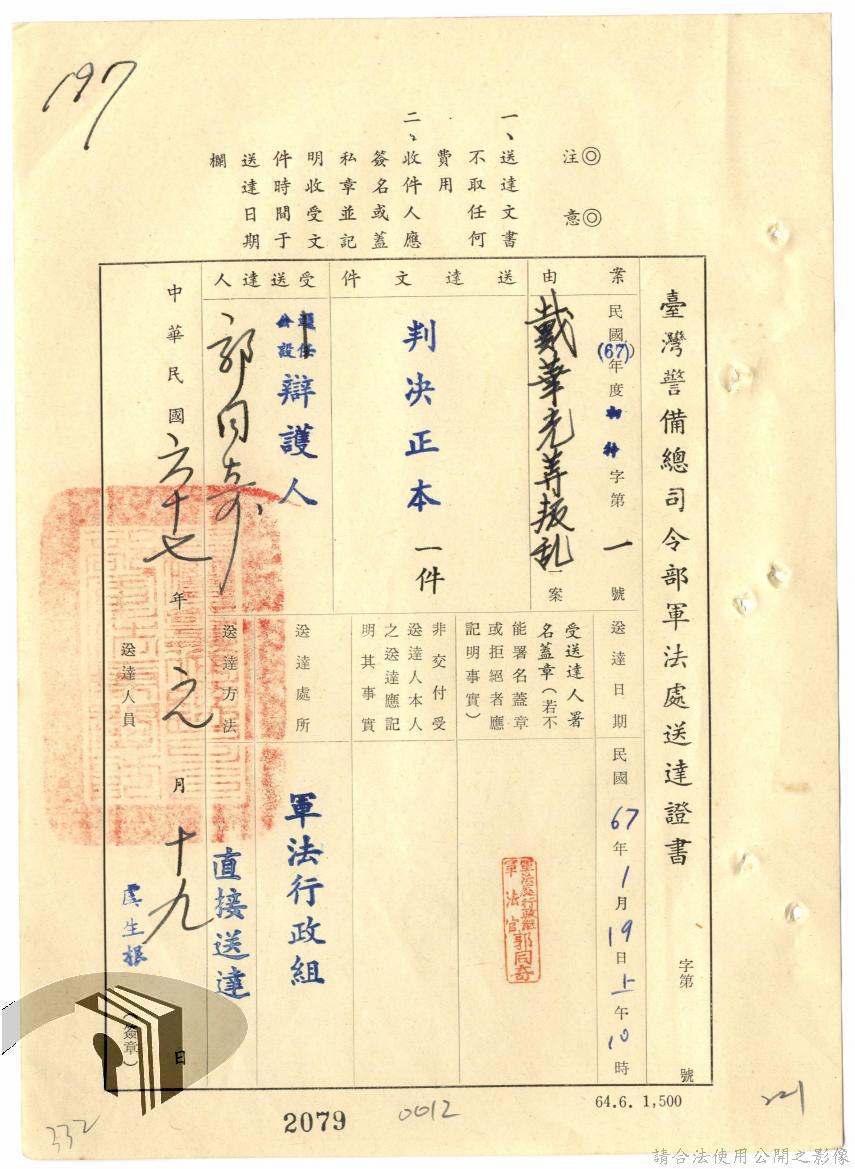 197
◎注意◎
一、送達文書
不取任何
費用
二、收件人應
簽名或蓋
私章並記
明收受文
件時間于
送達日期
欄
臺灣警備總司令部軍法處送達證書
字第 號
案由
民國(67)年度初特字第一號
戴華光等叛乱一案
送達文件
判決正本一件
受送達人
選任
公設
辯護人
郭同奇
送達日期
民國67年1月19日上午10時
受送達人署
名蓋章(若不
能署名蓋章
或拒絕者應
記明事實)
軍法處行政組
軍法官郭同奇
非交付受
送達人本人
之送達應記
明其事實
送達處所
軍法行政組
送達方法
直接送達
中華民國六十七年元月十九日
送達人員
虞生根
(簽章)
64.6. 1,500
2079
0012
332
221
請合法使用公開之影像